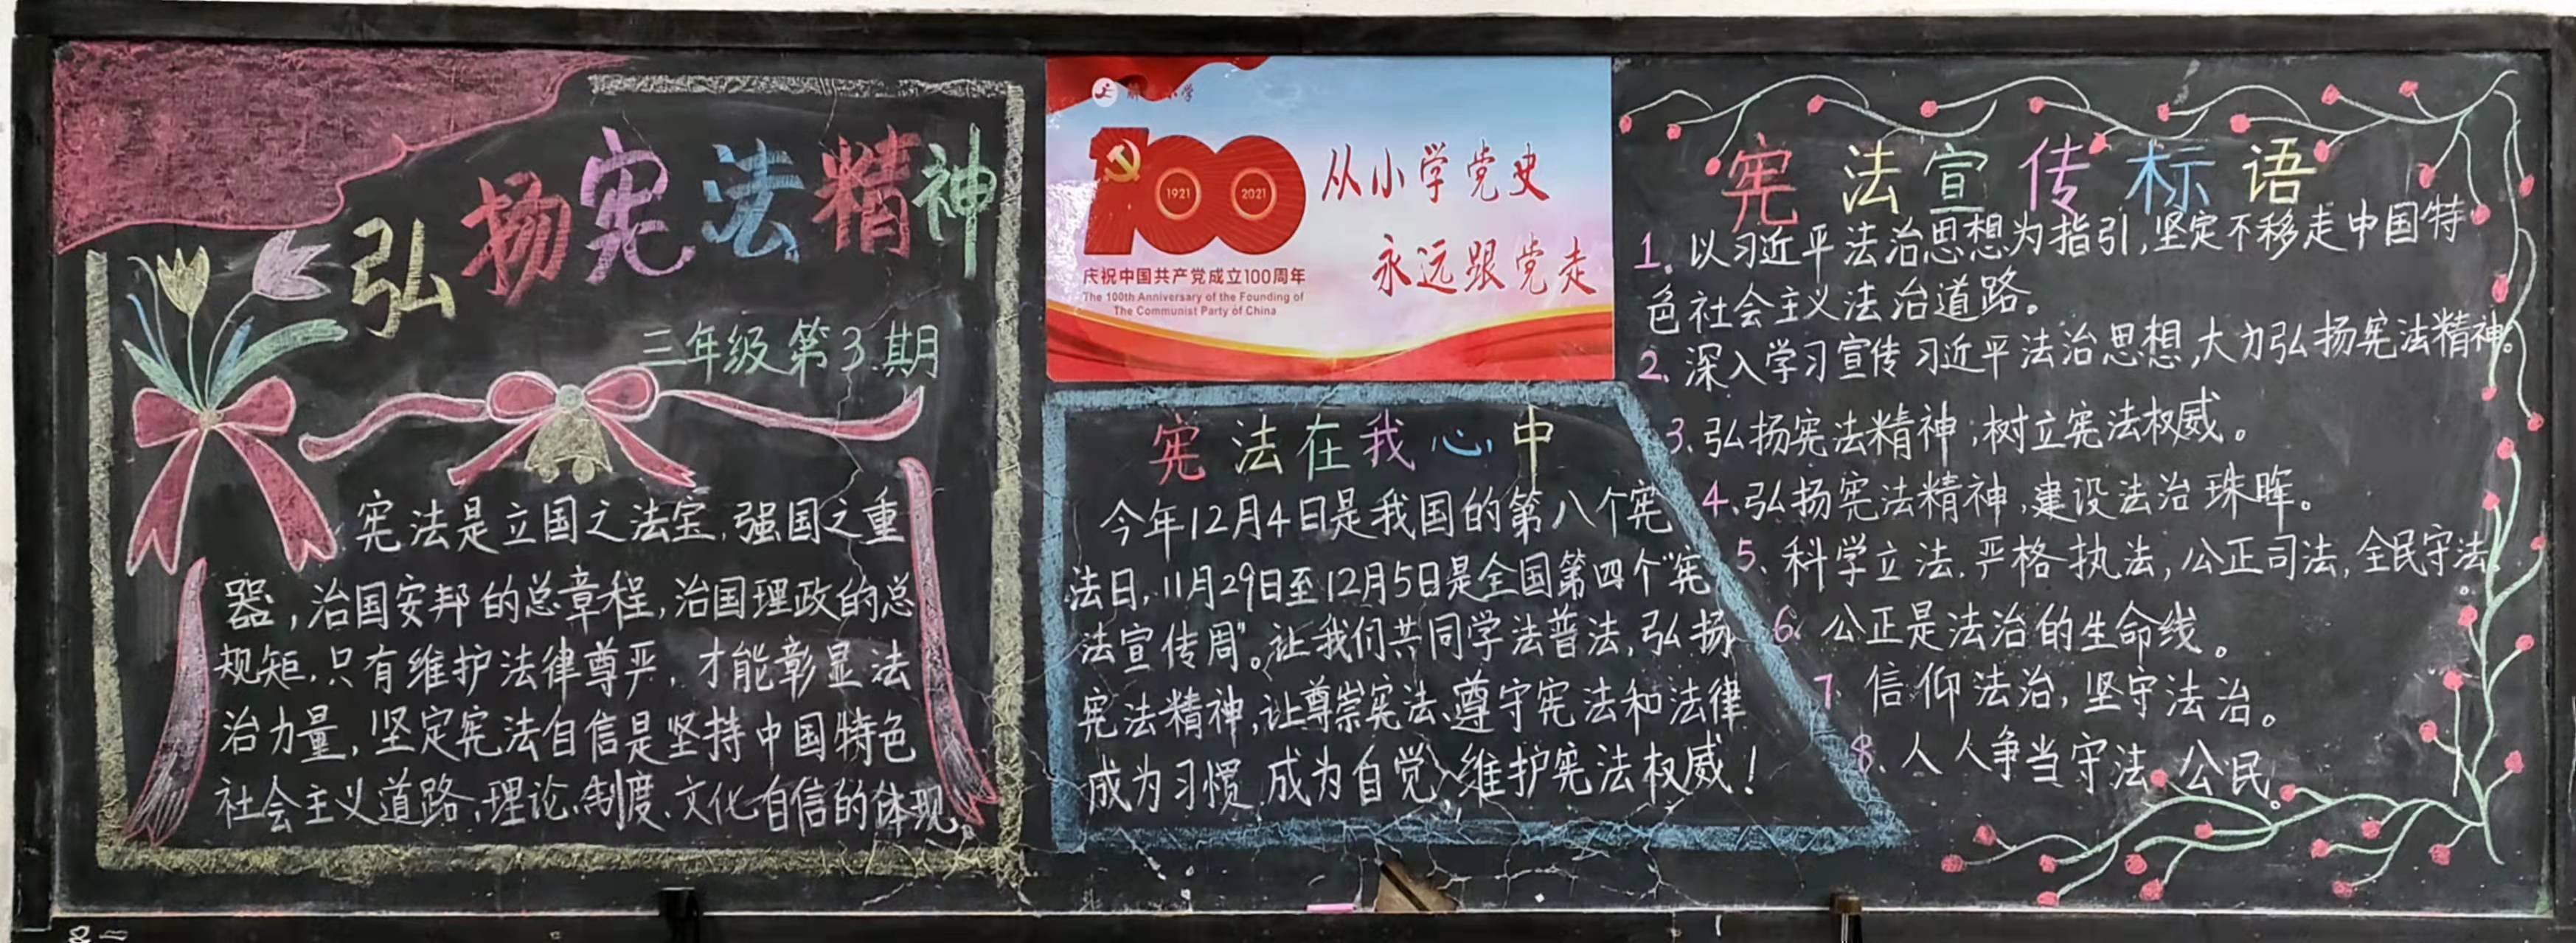 弘扬宪法精神
三年级第3期
宪法是立国之法宝,强国之重
器,治国安邦的总章程,治国理政的总
规矩,只有维护法律尊严,才能彰显法
治力量,坚定宪法自信是坚持中国特色
社会主义道路、理论、制度、文化自信的体现。
小学
100
1921
2021
从小学党史
永远跟党走
庆祝中国共产党成立100周年
The 100th Anniversary of the Founding of
The Communist Party of China
宪法在我心中
今年12月4日是我国的第八个宪
法日,11月29日至12月5日是全国第四个“宪
法宣传周”。让我们共同学法普法,弘扬
宪法精神,让尊崇宪法、遵守宪法和法律
成为习惯,成为自觉,维护宪法权威!
宪法宣传标语
1. 以习近平法治思想为指引,坚定不移走中国特
色社会主义法治道路。
2. 深入学习宣传习近平法治思想,大力弘扬宪法精神。
3. 弘扬宪法精神,树立宪法权威。
4. 弘扬宪法精神,建设法治珠晖。
5、科学立法,严格执法,公正司法,全民守法。
6. 公正是法治的生命线。
7. 信仰法治,坚守法治。
8、人人争当守法公民。